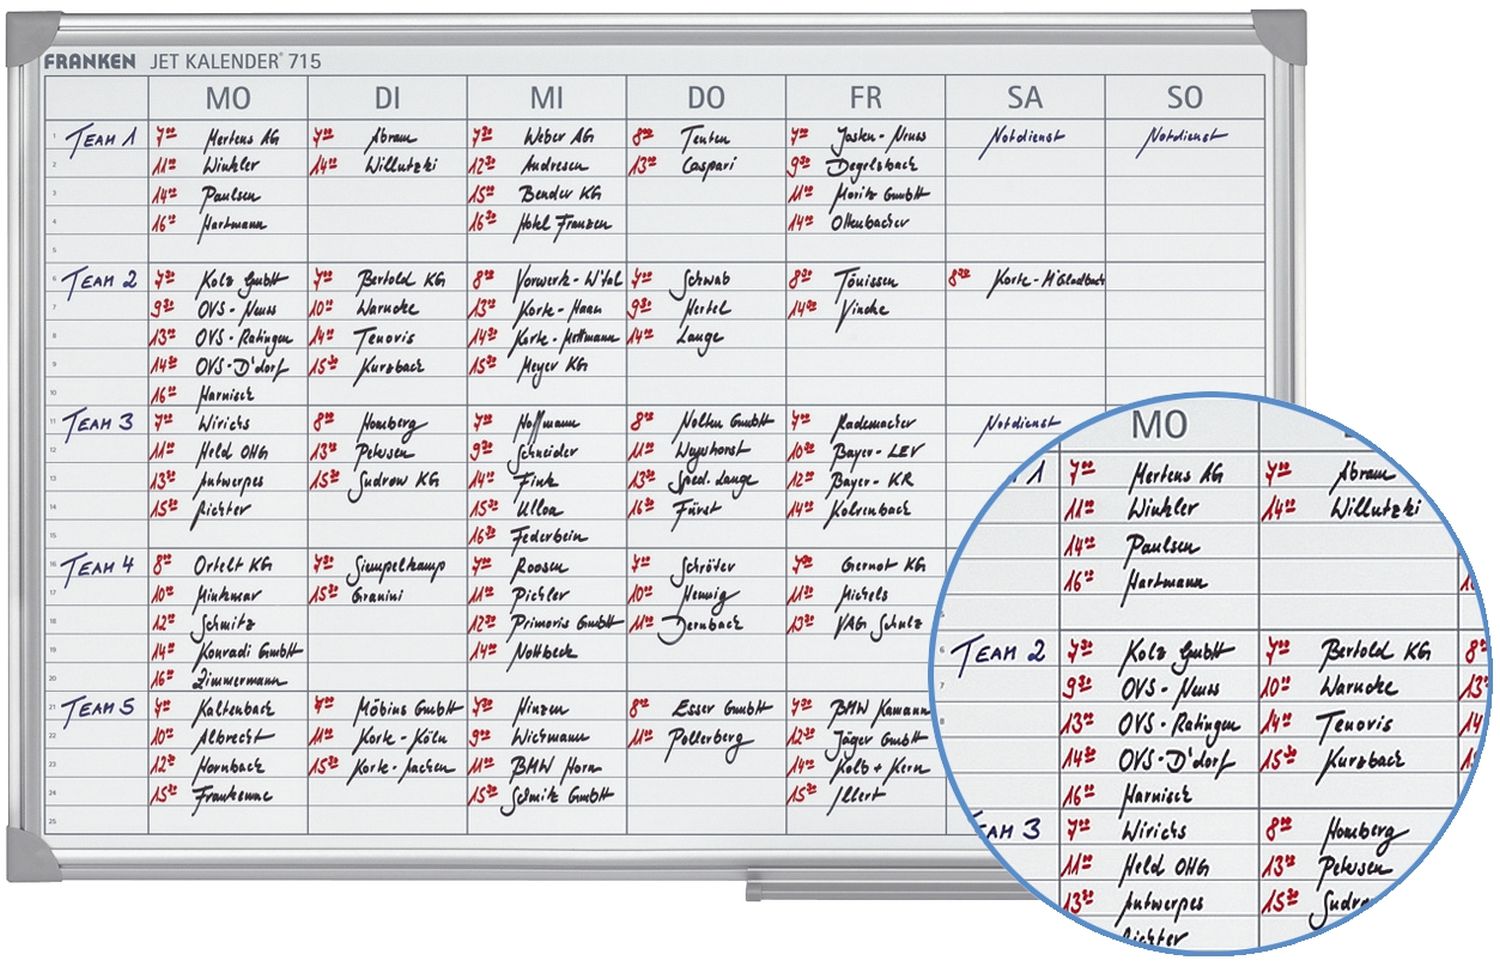 FRANKEN JET KALENDER® 715
MO DI MI DO FR SA SO
1 TEAM 1 7⁰⁰ Mertens AG 7⁰⁰ Abram 7³⁰ Weber AG 8⁰⁰ Teuten 7⁰⁰ Josten-Neuss Notdienst Notdienst
2 11⁰⁰ Winkler 14⁰⁰ Willutzki 12³⁰ Andresen 13⁰⁰ Caspari 9³⁰ Degelsback
3 14⁰⁰ Paulsen 15⁰⁰ Bender KG 11⁰⁰ Moritz GmbH
4 16⁰⁰ Hartmann 16³⁰ Hotel Franzen 14⁰⁰ Ottenbacher
5
6 TEAM 2 7³⁰ Kolz GmbH 7⁰⁰ Bertold KG 8⁰⁰ Vorwerk-W'tal 7⁰⁰ Schwab 8³⁰ Tönissen 8³⁰ Korte-M'Gladbach
7 9³⁰ OVS-Neuss 10⁰⁰ Warncke 13⁰⁰ Korte-Haan 9³⁰ Hertel 14³⁰ Vincke
8 13⁰⁰ OVS-Ratingen 14⁰⁰ Tenovis 14³⁰ Korte-Mettmann 14⁰⁰ Lange
9 14³⁰ OVS-D'dorf 15³⁰ Kurzback 15³⁰ Meyer KG
10 16⁰⁰ Harnisch
11 TEAM 3 7⁰⁰ Wirichs 8⁰⁰ Homberg 7⁰⁰ Hoffmann 8⁰⁰ Nolten GmbH 7⁰⁰ Rademacher Notdienst
12 11⁰⁰ Held OHG 13⁰⁰ Petersen 9³⁰ Schneider 11⁰⁰ Weyhorst 10³⁰ Bayer-LEV
13 13³⁰ Antwerpes 15³⁰ Sudrow KG 14⁰⁰ Fink 13³⁰ Sped. Lange 12⁰⁰ Bayer-KR
14 15³⁰ Richter 15³⁰ Ulloa 16³⁰ Fürst 14⁰⁰ Kolvenbach
15 16³⁰ Federbein
16 TEAM 4 8⁰⁰ Ortelt KG 7³⁰ Siempelkamp 7⁰⁰ Roosen 7⁰⁰ Schröter 7³⁰ Gernot KG
17 10⁰⁰ Minkmar 15³⁰ Granini 11⁰⁰ Pichler 10⁰⁰ Hennig 11³⁰ Michels
18 12⁰⁰ Schmitz 12³⁰ Primoris GmbH 11⁰⁰ Dernback 13³⁰ VAG Schulz
19 14⁰⁰ Konradi GmbH 14⁰⁰ Nottbeck
20 16⁰⁰ Zimmermann
21 TEAM 5 7⁰⁰ Kaltenback 7⁰⁰ Möbius GmbH 7³⁰ Hinzen 8⁰⁰ Esser GmbH 7³⁰ BMW Kamann
22 10⁰⁰ Albrecht 11⁰⁰ Korte-Köln 9⁰⁰ Wichmann 11⁰⁰ Pollerberg 12³⁰ Jäger GmbH
23 12³⁰ Hornback 15³⁰ Korte-Aachen 11⁰⁰ BMW Horn 14⁰⁰ Kolb + Kern
24 15³⁰ Frankenne 15³⁰ Schmitz GmbH 15³⁰ Illert
25
MO
1 7⁰⁰ Mertens AG 7⁰⁰ Abram
11⁰⁰ Winkler 14⁰⁰ Willutzki
14⁰⁰ Paulsen
16⁰⁰ Hartmann
6 TEAM 2 7³⁰ Kolz GmbH 7⁰⁰ Bertold KG 8⁰
7 9³⁰ OVS-Neuss 10⁰⁰ Warncke 13
8 13⁰⁰ OVS-Ratingen 14⁰⁰ Tenovis 14
14³⁰ OVS-D'dorf 15³⁰ Kurzback
16⁰⁰ Harnisch
EAM 3 7⁰⁰ Wirichs 8⁰⁰ Homberg
11⁰⁰ Held OHG 13⁰⁰ Petersen
13³⁰ Antwerpes 15³⁰ Sudro
Richter